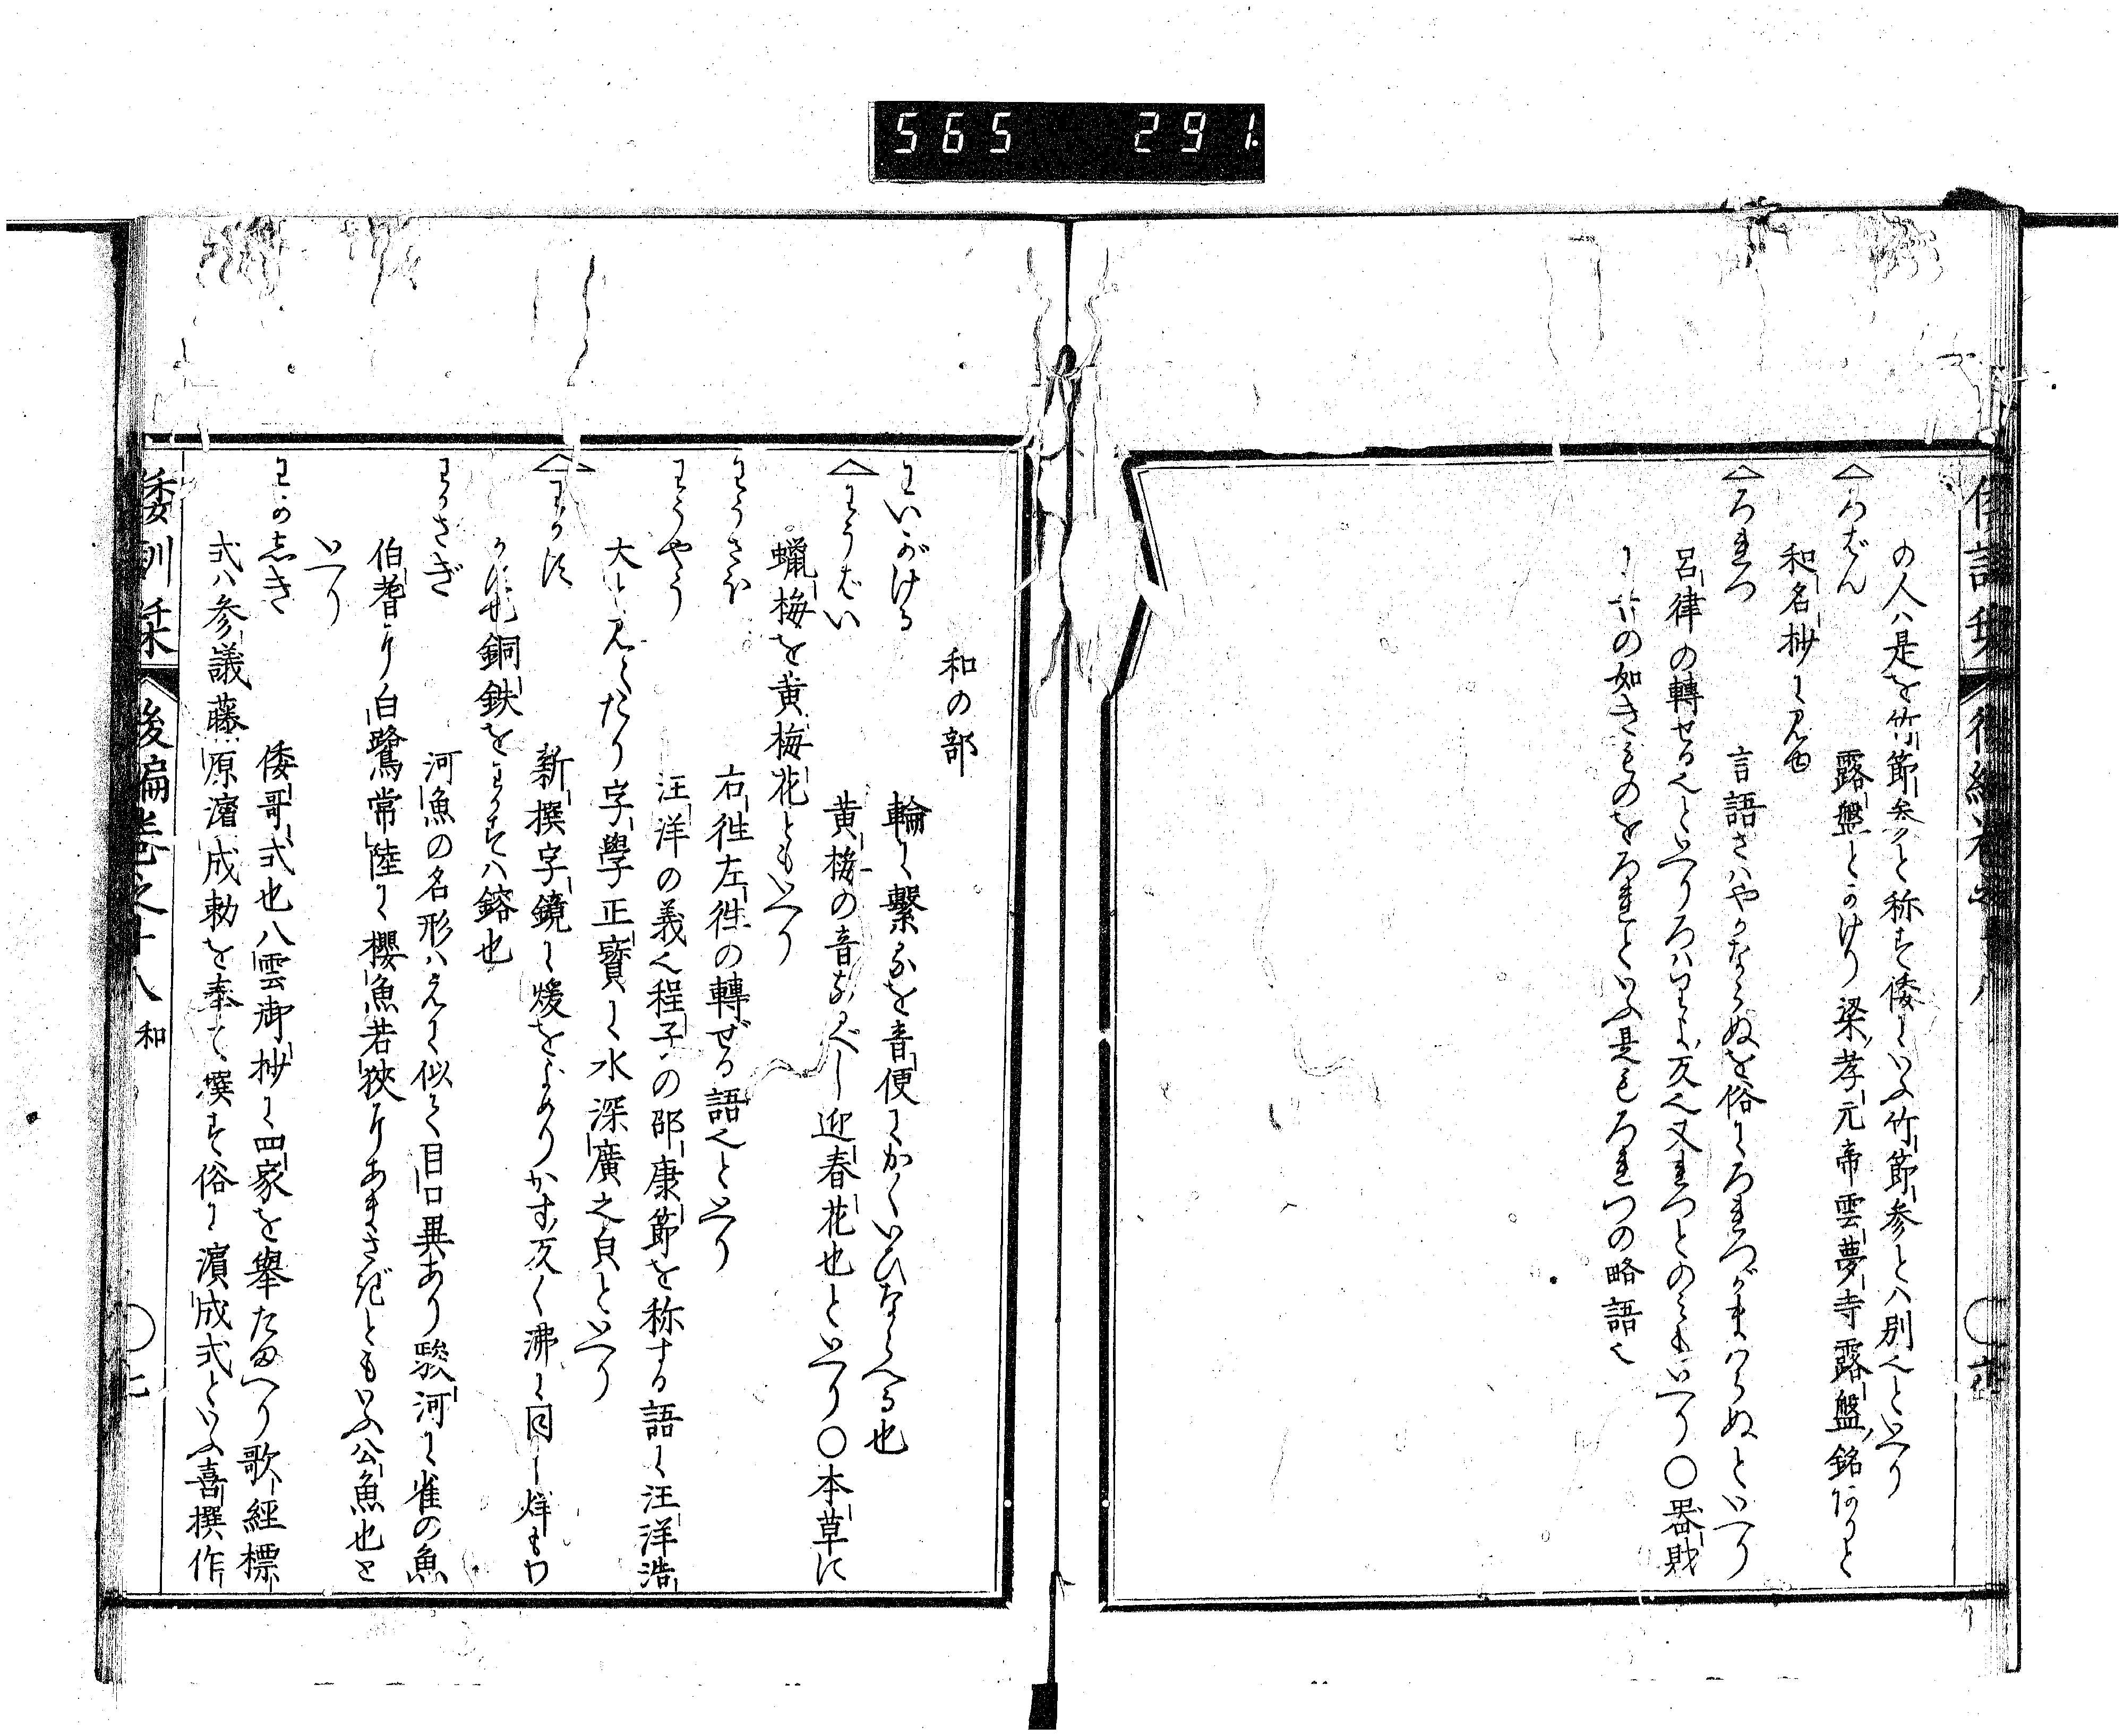 565 291
の人ハ是を竹節参と称す倭にいふ竹節参とハ別也といへり
ろばん 露盤とかけり梁孝元帝雲夢寺露盤銘ありと
和名抄に見ゆ
ろれつ 言語さハやかならぬを俗にろれつがまはらぬといへり
呂律の轉せる也といへりろハりよ反也又れつとのミもいへり〇器財
に廿の如きものをろれといふ是もろれつの略語也
和の部
わいがける 輪に繋るを音便にかくいひならへる也
わうばい 黄梅の音なるべし迎春花也といへり〇本草に
蠟梅を黄梅花ともいへり
わうさな 右徃左徃の轉ぜる語也といへり
わうやう 汪洋の義也程子の邵康節を称する語に汪洋浩
大と見えたり字學正寳に水深廣之皃といへり
わかす 新撰字鏡に煖をよめりかす反く沸に同し烊もわ
かす也銅鉄をわかすハ鎔也
わかさぎ 河魚の名形ハえに似て目口異あり駿河に雀の魚
伯耆に白鷺常陸に櫻魚若狹にあまさぎともいふ公魚也と
いへり
わかしき 倭哥式也八雲御抄に四家を舉たまへり歌經標
式ハ参議藤原濱成勅を奉て撰す俗に濱成式といふ喜撰作
倭訓栞 後編巻之十八 和